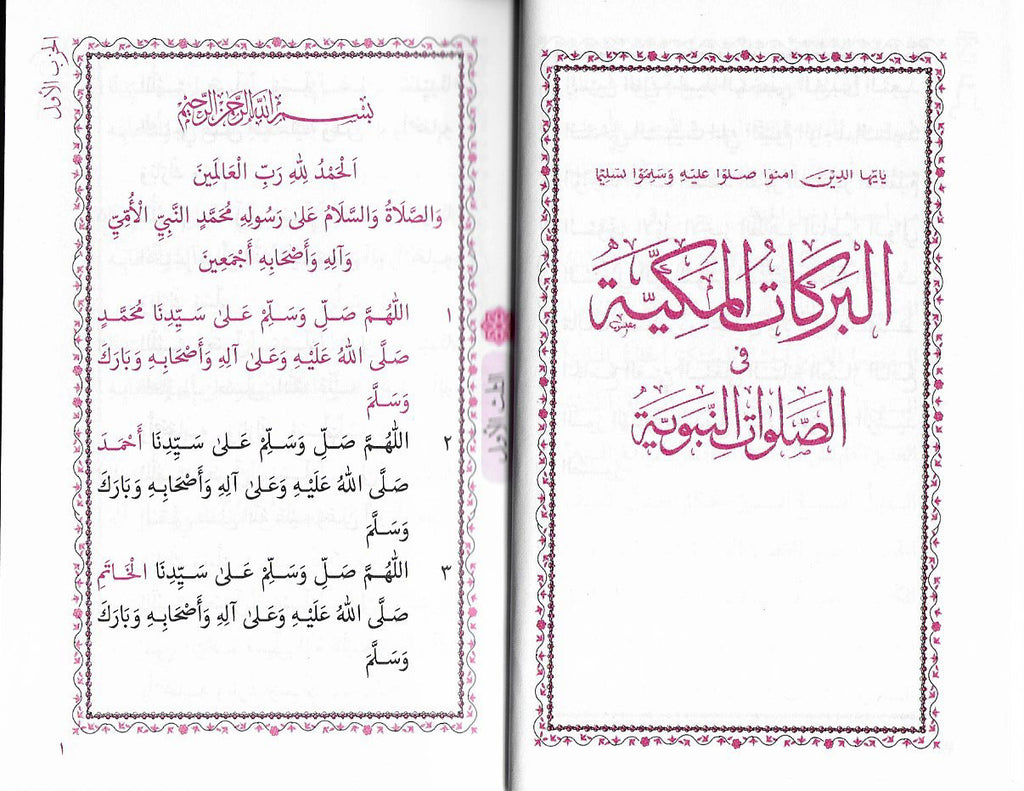 يٰأَيُّهَا الَّذِيْنَ اٰمَنُوْا صَلُّوْا عَلَيْهِ وَسَلِّمُوْا تَسْلِيْمًا
الْبَرَكَاتُ الْمَكِّيَّةُ
فِي
الصَّلَوَاتِ النَّبَوِيَّةِ
الحزب الأول
بِسْمِ اللهِ الرَّحْمٰنِ الرَّحِيْمِ
اَلْحَمْدُ لِلّٰهِ رَبِّ الْعَالَمِينَ
وَالصَّلَاةُ وَالسَّلَامُ عَلىٰ رَسُولِهِ مُحَمَّدٍ النَّبِيِّ الْأُمِّيِّ
وَآلِهِ وَأَصْحَابِهِ أَجْمَعِينَ
١ اَللّٰهُمَّ صَلِّ وَسَلِّمْ عَلىٰ سَيِّدِنَا مُحَمَّدٍ
صَلَّى اللهُ عَلَيْهِ وَعَلىٰ آلِهِ وَأَصْحَابِهِ وَبَارَكَ
وَسَلَّمَ
٢ اَللّٰهُمَّ صَلِّ وَسَلِّمْ عَلىٰ سَيِّدِنَا أَحْمَدَ
صَلَّى اللهُ عَلَيْهِ وَعَلىٰ آلِهِ وَأَصْحَابِهِ وَبَارَكَ
وَسَلَّمَ
٣ اَللّٰهُمَّ صَلِّ وَسَلِّمْ عَلىٰ سَيِّدِنَا الْخَاتَمِ
صَلَّى اللهُ عَلَيْهِ وَعَلىٰ آلِهِ وَأَصْحَابِهِ وَبَارَكَ
وَسَلَّمَ
١